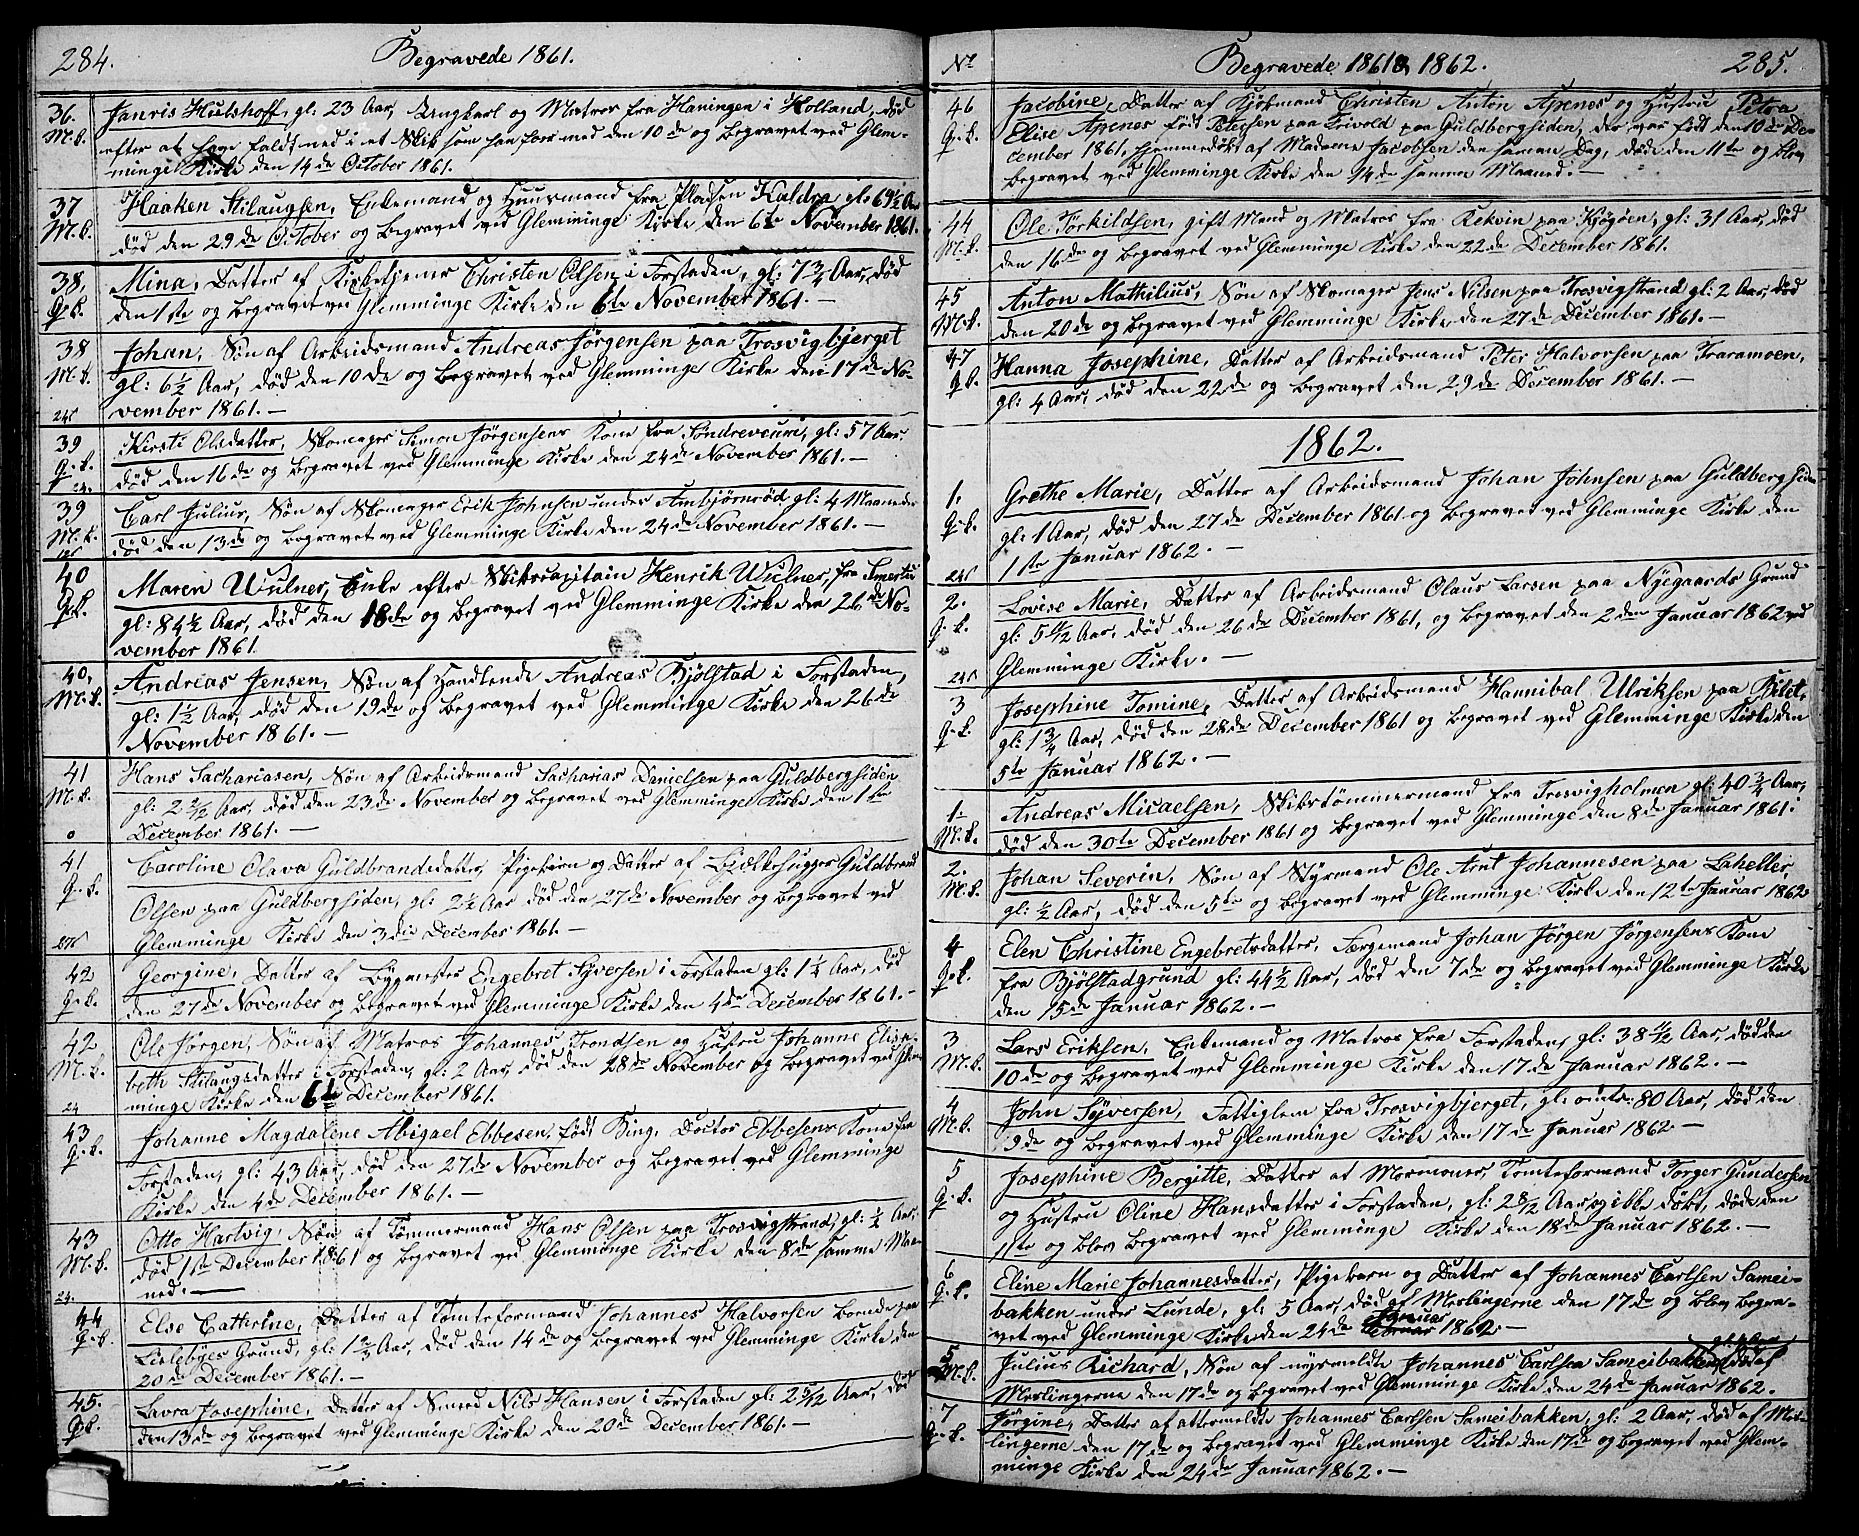 284.
Begravede 1861.
36.
M.k.
Janris Hulshoff, gl. 23 Aar, Ungkarl og Matros fra Haningen i Holland, död
efter at have faldt ned i et Skib som han foer med den 10de og begravet ved Glem-
minge Kirke den 14de October 1861.
37
M.k.
Haaken Stilaugsen, Enkemand og Huusmand fra Pladsen Kaldra gl. 69½ Aar
död den 29de October og begravet ved Glemminge Kirke den 6te November 1861.
38,
Q.k.
Mina, Datter af Kirketjener Christen Olsen i Forstaden, gl: 7¾ Aar, död
den 1ste og begravet ved Glemminge Kirke den 6te November 1861. —
38
M.k.
Johan, Sön af Arbeidsmand Andreas Jörgensen paa Trosvigbjerget
gl: 6½ Aar, död den 10de og begravet ved Glemminge Kirke den 17de No-
vember 1861. —
39
Q.k.
24.
Kirsti Olsdatter, Skomager Simon Jörgensens Kone fra Söndreveum, gl: 57 Aar.
död den 16de og begravet ved Glemminge Kirke den 24de November 1861. —
39
M.k.
Carl Julius, Sön af Skomager Erik Johnsen under Ambjörnröd gl: 4 Maaneder
död den 13de og begravet ved Glemminge Kirke den 24de November 1861. —
40
Q.k.
Maren Wulner, Enke efter Skibscapitain Henrik Wulner, fra Smertu
gl: 84½ Aar, död den 18de og begravet ved Glemminge Kirke den 26de No-
vember 1861.
40,
M.k.
Andreas Jensen, Sön af Handlende Andreas Bjölstad i Forstaden,
gl: 1½ Aar, död den 19de og begravet ved Glemminge Kirke den 26de
November 1861. —
41
M.k.
Hans Sachariasen, Sön af Arbeidsmand Sacharias Danielsen paa Guldbergsiden
gl: 2 2/12 Aar, död den 23de November og begravet ved Glemminge Kirke den 1ste
December 1861. —
41
Q.k.
Caroline Olava Guldbrandsdatter, Pigebarn og Datter af Bjelkehugger Guldbrand
Olsen paa Guldbergsiden, gl: 2¼ Aar död den 27de November og begravet ved
Glemminge Kirke den 3die December 1861. —
42
Q.k.
Georgine, Datter af Bygmester Engebret Syversen i Forstaden gl: 1¼ Aar, död
den 27de November og begravet ved Glemminge Kirke den 4de December 1861. —
42
M.k.
24
Ole Jörgen, Sön af Matros Johannes Trondsen og Hustru Johanne Elisa-
beth Stilaugsdatter i Forstaden, gl: 2 Aar, död den 28de November og begravet ved Glem-
minge Kirke den 6te December 1861.
43
Q.k.
Johanne Magdalene Abigael Ebbesen, födt Bing, Doctor Ebbesens Kone fra
Forstaden, gl: 43 Aar, död den 27de November og begravet ved Glemminge
Kirke den 4de December 1861. —
43
M.k.
24.
Otto Hartvig, Sön af Tömmermand Hans Olsen paa Trosvigstrand, gl: ½ Aar,
död 1ste December 1861 og begravet ved Glemminge Kirke den 8de samme Maa-
ned. —
44
Q.k.
Else Cathrine, Datter af Tomteformand Johannes Halvorsen boende paa
Lislebyes Grund, gl: 1 2/3 Aar, död den 14de og begravet ved Glemminge Kirke den
20de December 1861. —
45.
Q.k.
Lavra Josephine, Datter af Smed Nils Hansen i Forstaden gl: 2 5/12 Aar, död
den 13de og begravet ved Glemminge Kirke den 20de December 1861. —
No
Begravede 1861 & 1862.
285.
46
Q.k.
Jacobine, Datter af Kjöbmand Christen Anton Apenes og Hustru Petra
Elise Apenes födt Petersen paa Trivold paa Guldbergsiden, der var födt den 10de De-
cember 1861, hjemmedöbt af Madame Jacobsen den samme Dag, döde den 11te og blev
begravet ved Glemminge Kirke den 14de samme Maaned. —
44
M.k.
Ole Torkildsen, gift Mand og Matros fra Rekvin paa Kragöen, gl: 31 Aar, död
den 16de og begravet ved Glemminge Kirke den 22de December 1861.
45
M.k.
Anton Mathilius, Sön af Skomager Jens Nilsen paa Trosvigstrand gl: 2 Aar, död
den 20de og begravet ved Glemminge Kirke den 27de December 1861. —
47
Q.k.
Hanna Josephine, Datter af Arbeidsmand Peter Halvorsen paa Traramoen,
gl: 4 Aar, död den 22de og begravet den 29de December 1861. —
1862.
1.
Q.k.
Grethe Marie, Datter af Arbeidsmand Johan Johnsen paa Guldbergsiden
gl: 1 Aar, död den 27de December 1861 og begravet ved Glemminge Kirke den
1ste Januar 1862. —
2.
Q.k.
Lovise Marie, Datter af Arbeidsmand Olaus Larsen paa Nyegaards Grund
gl: 5 11/12 Aar, död den 26de December 1861, og begravet den 2den Januar 1862 ved
Glemminge Kirke. —
3
Q.k.
Josephine Tomine, Datter af Arbeidsmand Hannibal Ulriksen paa Bilet,
gl: 1¾ Aar, död den 28de December 1861 og begravet ved Glemminge Kirke den
5te Januar 1862. —
1
M.k.
Andreas Micaelsen, Skibstömmermand fra Trosvigholmen gl: 40¾ Aar,
död den 30te December 1861 og begravet ved Glemminge den 8de Januar 1861.
2.
M.k.
Johan Severin, Sön af Styrmand Ole Arnt Johannesen paa Laheller,
gl: ½ Aar, död den 5te og begravet ved Glemminge Kirke den 12te Januar 1862
4
Q.k.
Elen Christine Engebretsdatter, Færgemand Johan Jörgen Jörgensens Kone
fra Bjölstadgrund gl: 44½ Aar, död den 7de og begravet ved Glemminge Kirke
den 15de Januar 1862. —
3
M.k.
Lars Eriksen, Enkemand og Matros fra Forstaden, gl: 38 11/12 Aar, död den
10de og begravet ved Glemminge Kirke den 17de Januar 1862. —
4
M.k.
John Syversen, Fattiglem fra Trosvigbjerget, gl: omtr: 80 Aar, död den
9de og begravet ved Glemminge Kirke den 17de Januar 1862. —
5
Q.k.
Josephine Bergitte, Datter af Mormoner, Tomteformand Torger Gundersen
og Hustru Oline Hansdatter i Forstaden, gl: 2 8/12 Aar og ikke döbt, döde den
1ste og blev begravet ved Glemminge Kirke den 18de Januar 1862. —
6
Q.k.
Eline Marie Johannesdatter, Pigebarn og Datter af Johannes Carlsen Samei-
bakken under Lunde, gl: 5 Aar, död af Meslingerne den 17de og blev begra-
vet ved Glemminge Kirke den 24de Januar 1862. —
5
M.k.
Julius Richard, Sön af nysmeldte Johannes Carlsen Sameibakken, död af
Meslingerne den 17de og begravet ved Glemminge Kirke den 24de Januar 1862.
7
Q.k.
Jörgine, Datter af attermeldte Johannes Carlsen Sameibakken, gl: 2 Aar, död af Mes-
lingerne den 17de og begravet ved Glemminge Kirke den 17de og begravet ved Glem-
minge Kirke den 24de Januar 1862. —